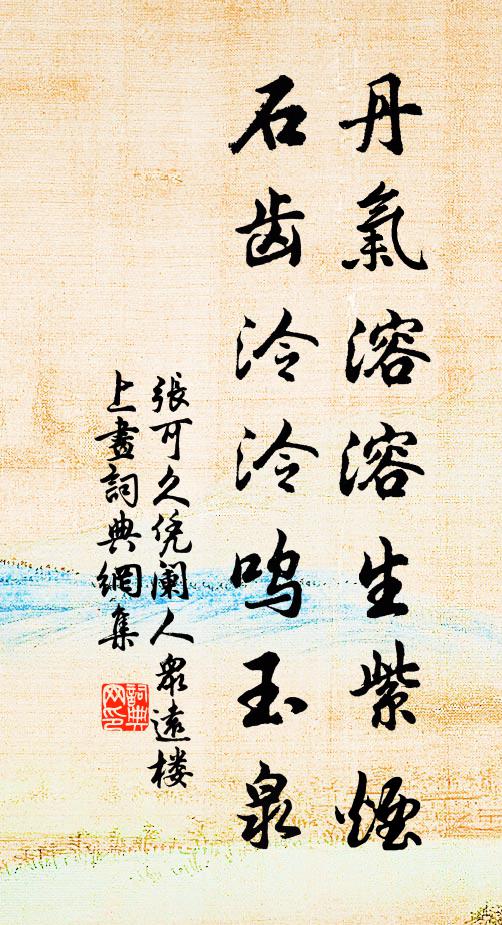 丹氣溶溶生紫煙
石齿泠泠鸣玉泉
張可久凭阑人眾遠楼
上畫詞典網集
詞典網印